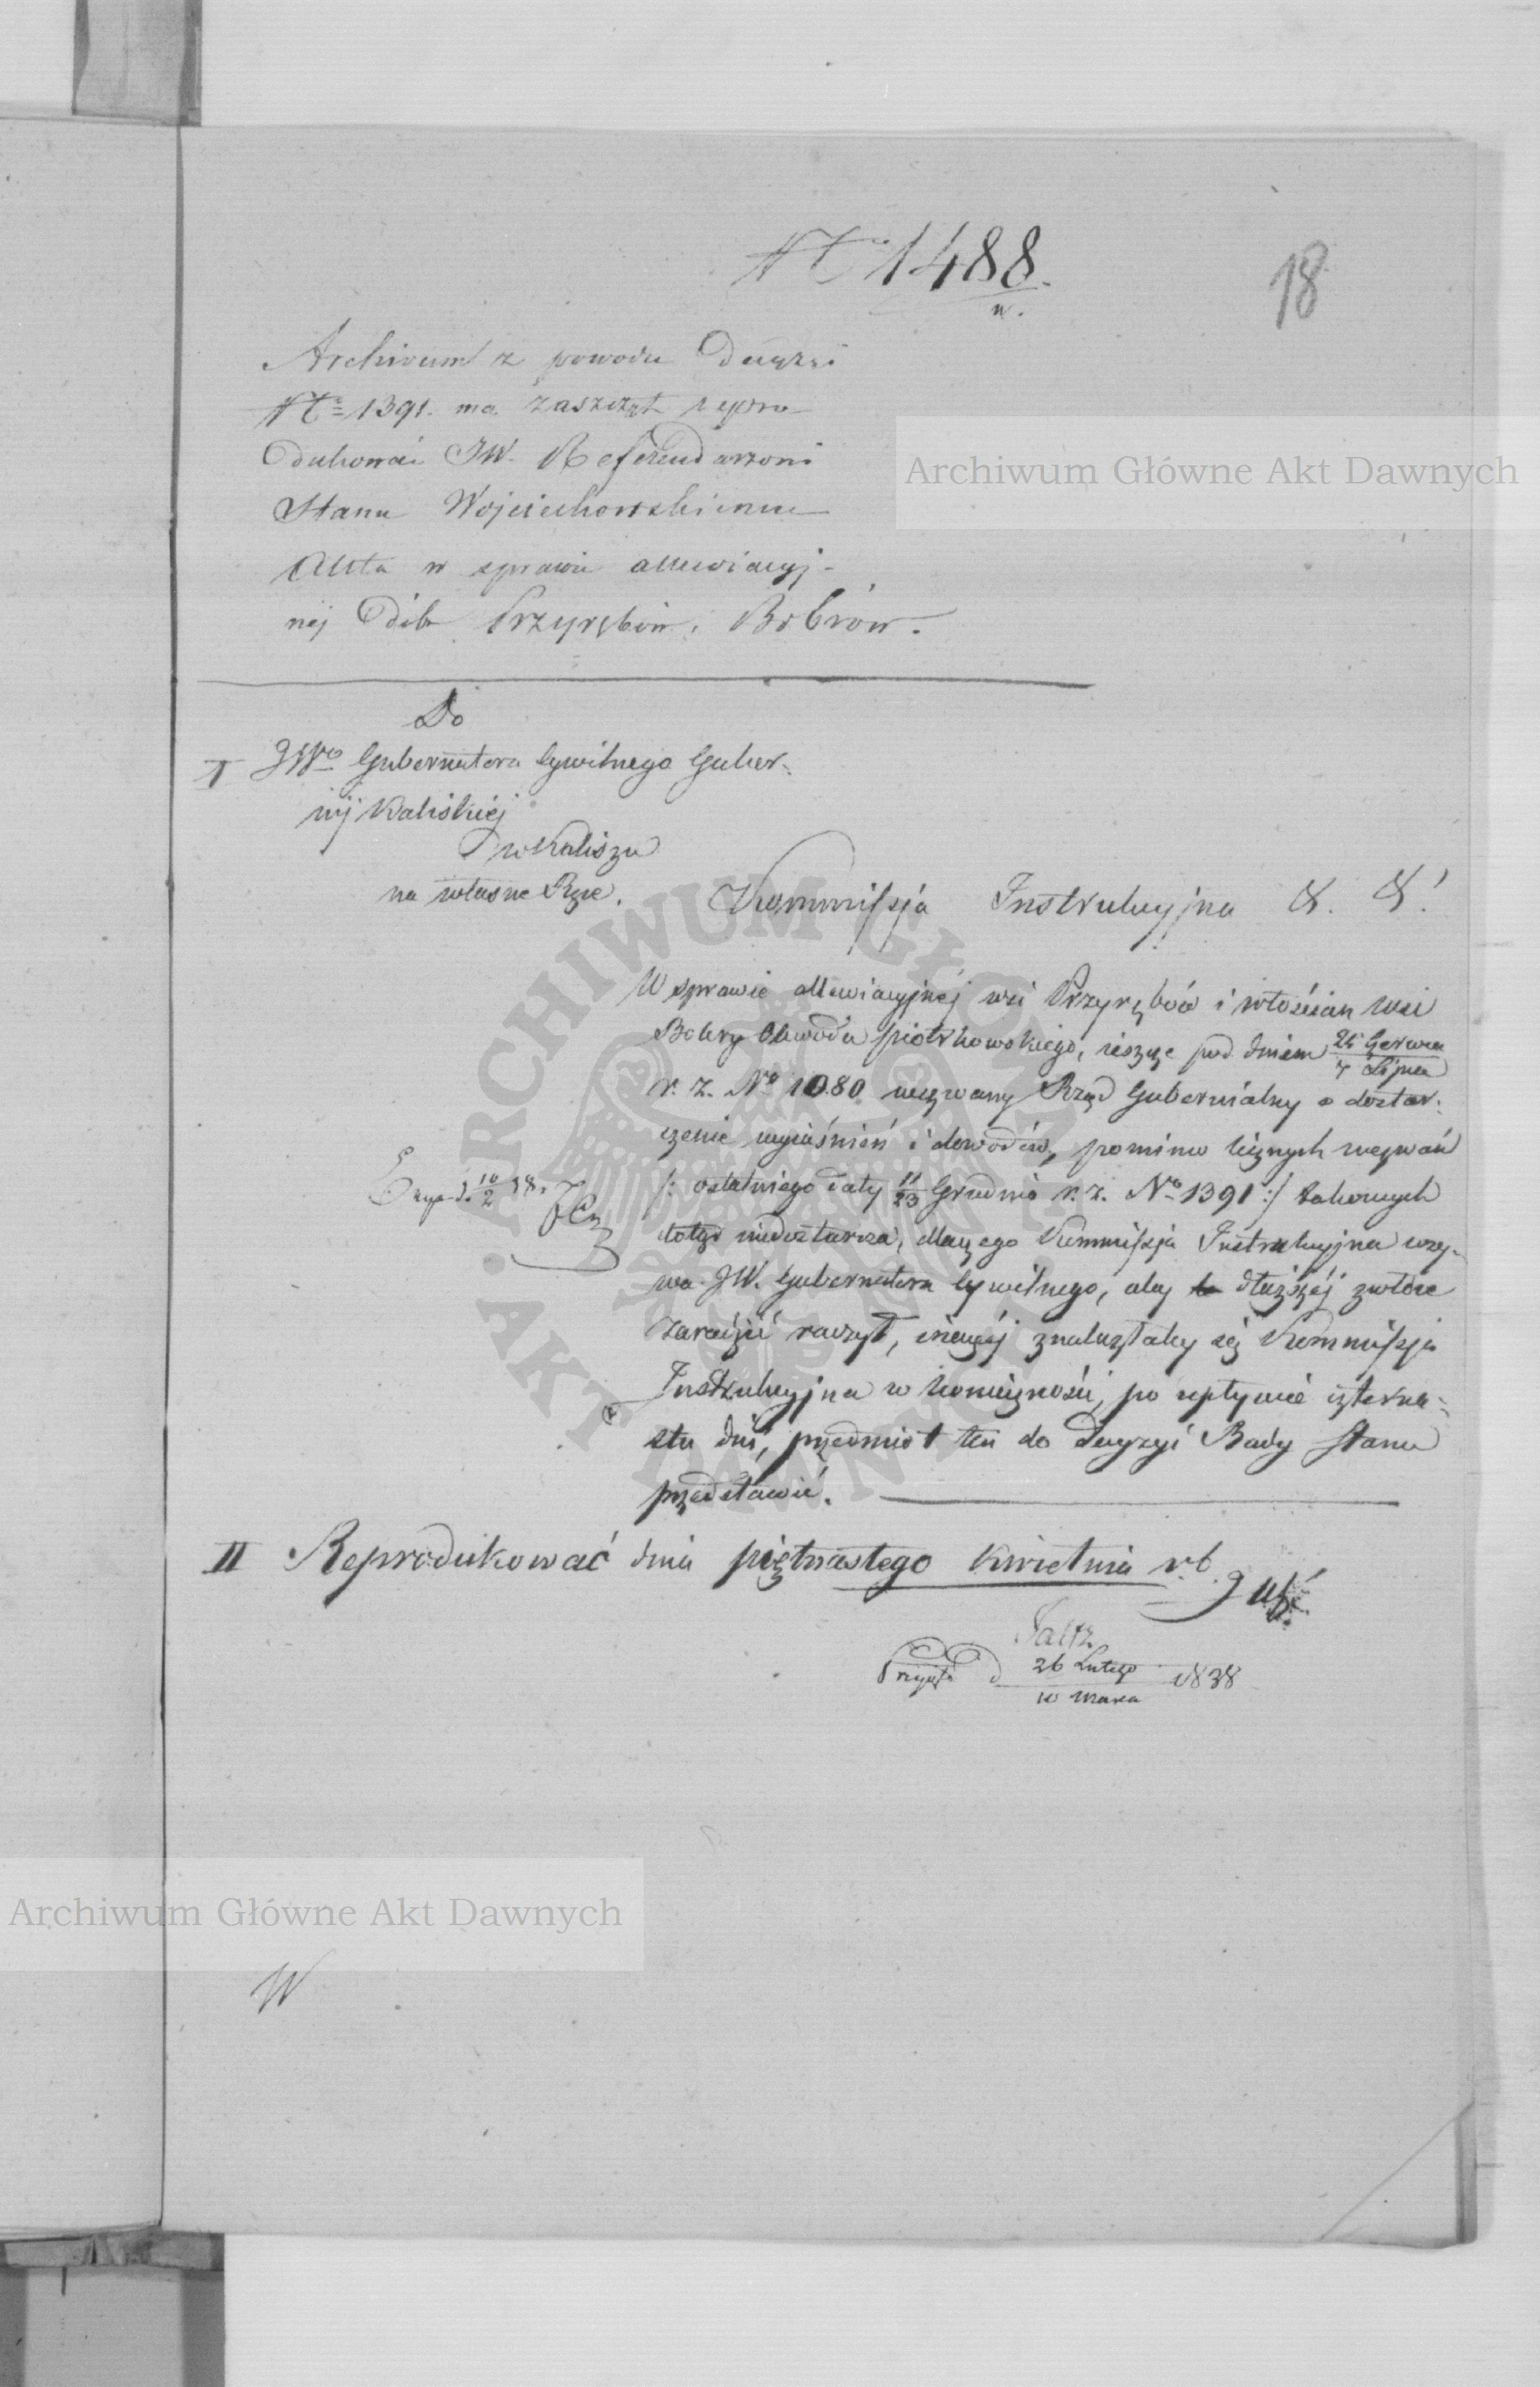 No 1488.
w.
18
Archiwum z powodu Decyzyi
No 1391. ma zaszczyt repro-
dukować JW. Referendarzowi
Stanu Wojciechowskiemu
Akta w sprawie allewiacyj-
nej Dóbr Przyrębów, Bobrów.
Do
I JWo Gubernatora Cywilnego Guber-
nij Kaliskiej
w Kaliszu
na własne Ręce.
Kommissja Instrukcyjna & &
W sprawie allewiacyjnej wsi Przyrębów i włościan wsi
Bobry Obwodu Piotrkowskiego, jeszcze pod dniem 25 Czerwca / 7 Lipca
r. z. No 1080 wezwany Rząd Gubernialny o dostar-
czenie wyjaśnień i dowodów, pomimo licznych wezwań
/: ostatniego daty 11/23 Grudnia r. z. No 1391 :/ takowych
dotąd niedostarcza, dlaczego Kommissja Instrukcyjna wzy-
wa JW. Gubernatora Cywilnego, aby dłuższej zwłoce
zaradzić raczył, inaczej znalazłaby się Kommissja
Instrukcyjna w konieczności, po upływie czterna-
stu dni, przedmiot ten do decyzyi Rady Stanu
przedstawić.
Exp. d. 10/2 38.
II Reprodukować dnia piętnastego Kwietnia r. b.
Przyjęto d 26 Lutego / 10 Marca 1838
W
Archiwum Główne Akt Dawnych
Archiwum Główne Akt Dawnych
ARCHIWUM GŁÓWNE AKT DAWNYCH